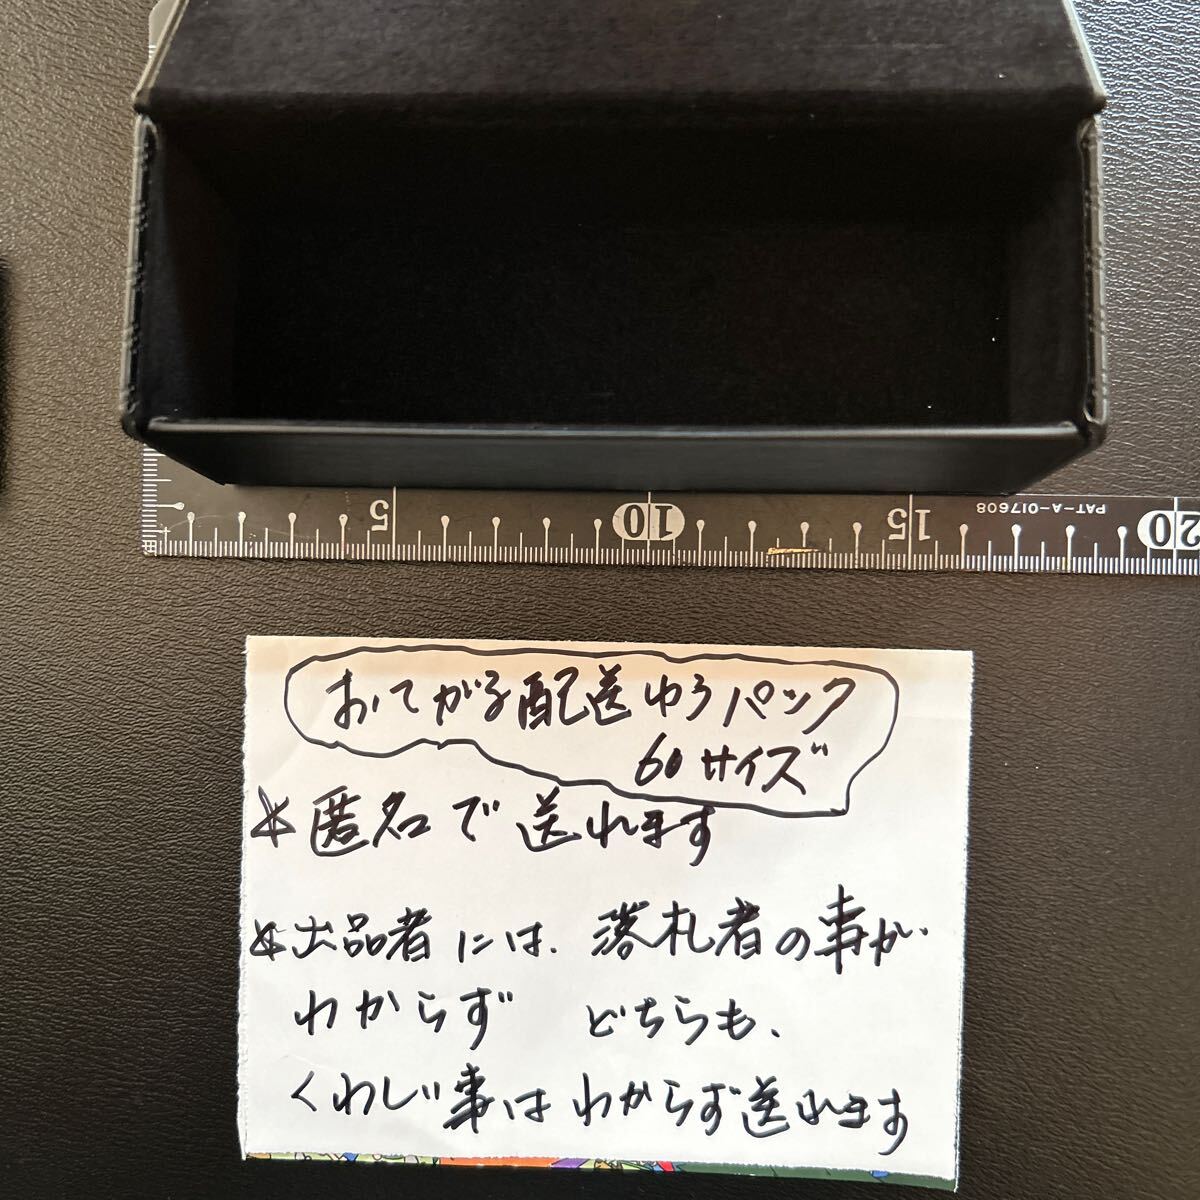 5
10
15
PAT-A-017608
20
おてがる配送ゆうパック
60サイズ
☆匿名で送れます
☆出品者には、落札者の事が
わからず どちらも、
くわしい事はわからず送れます